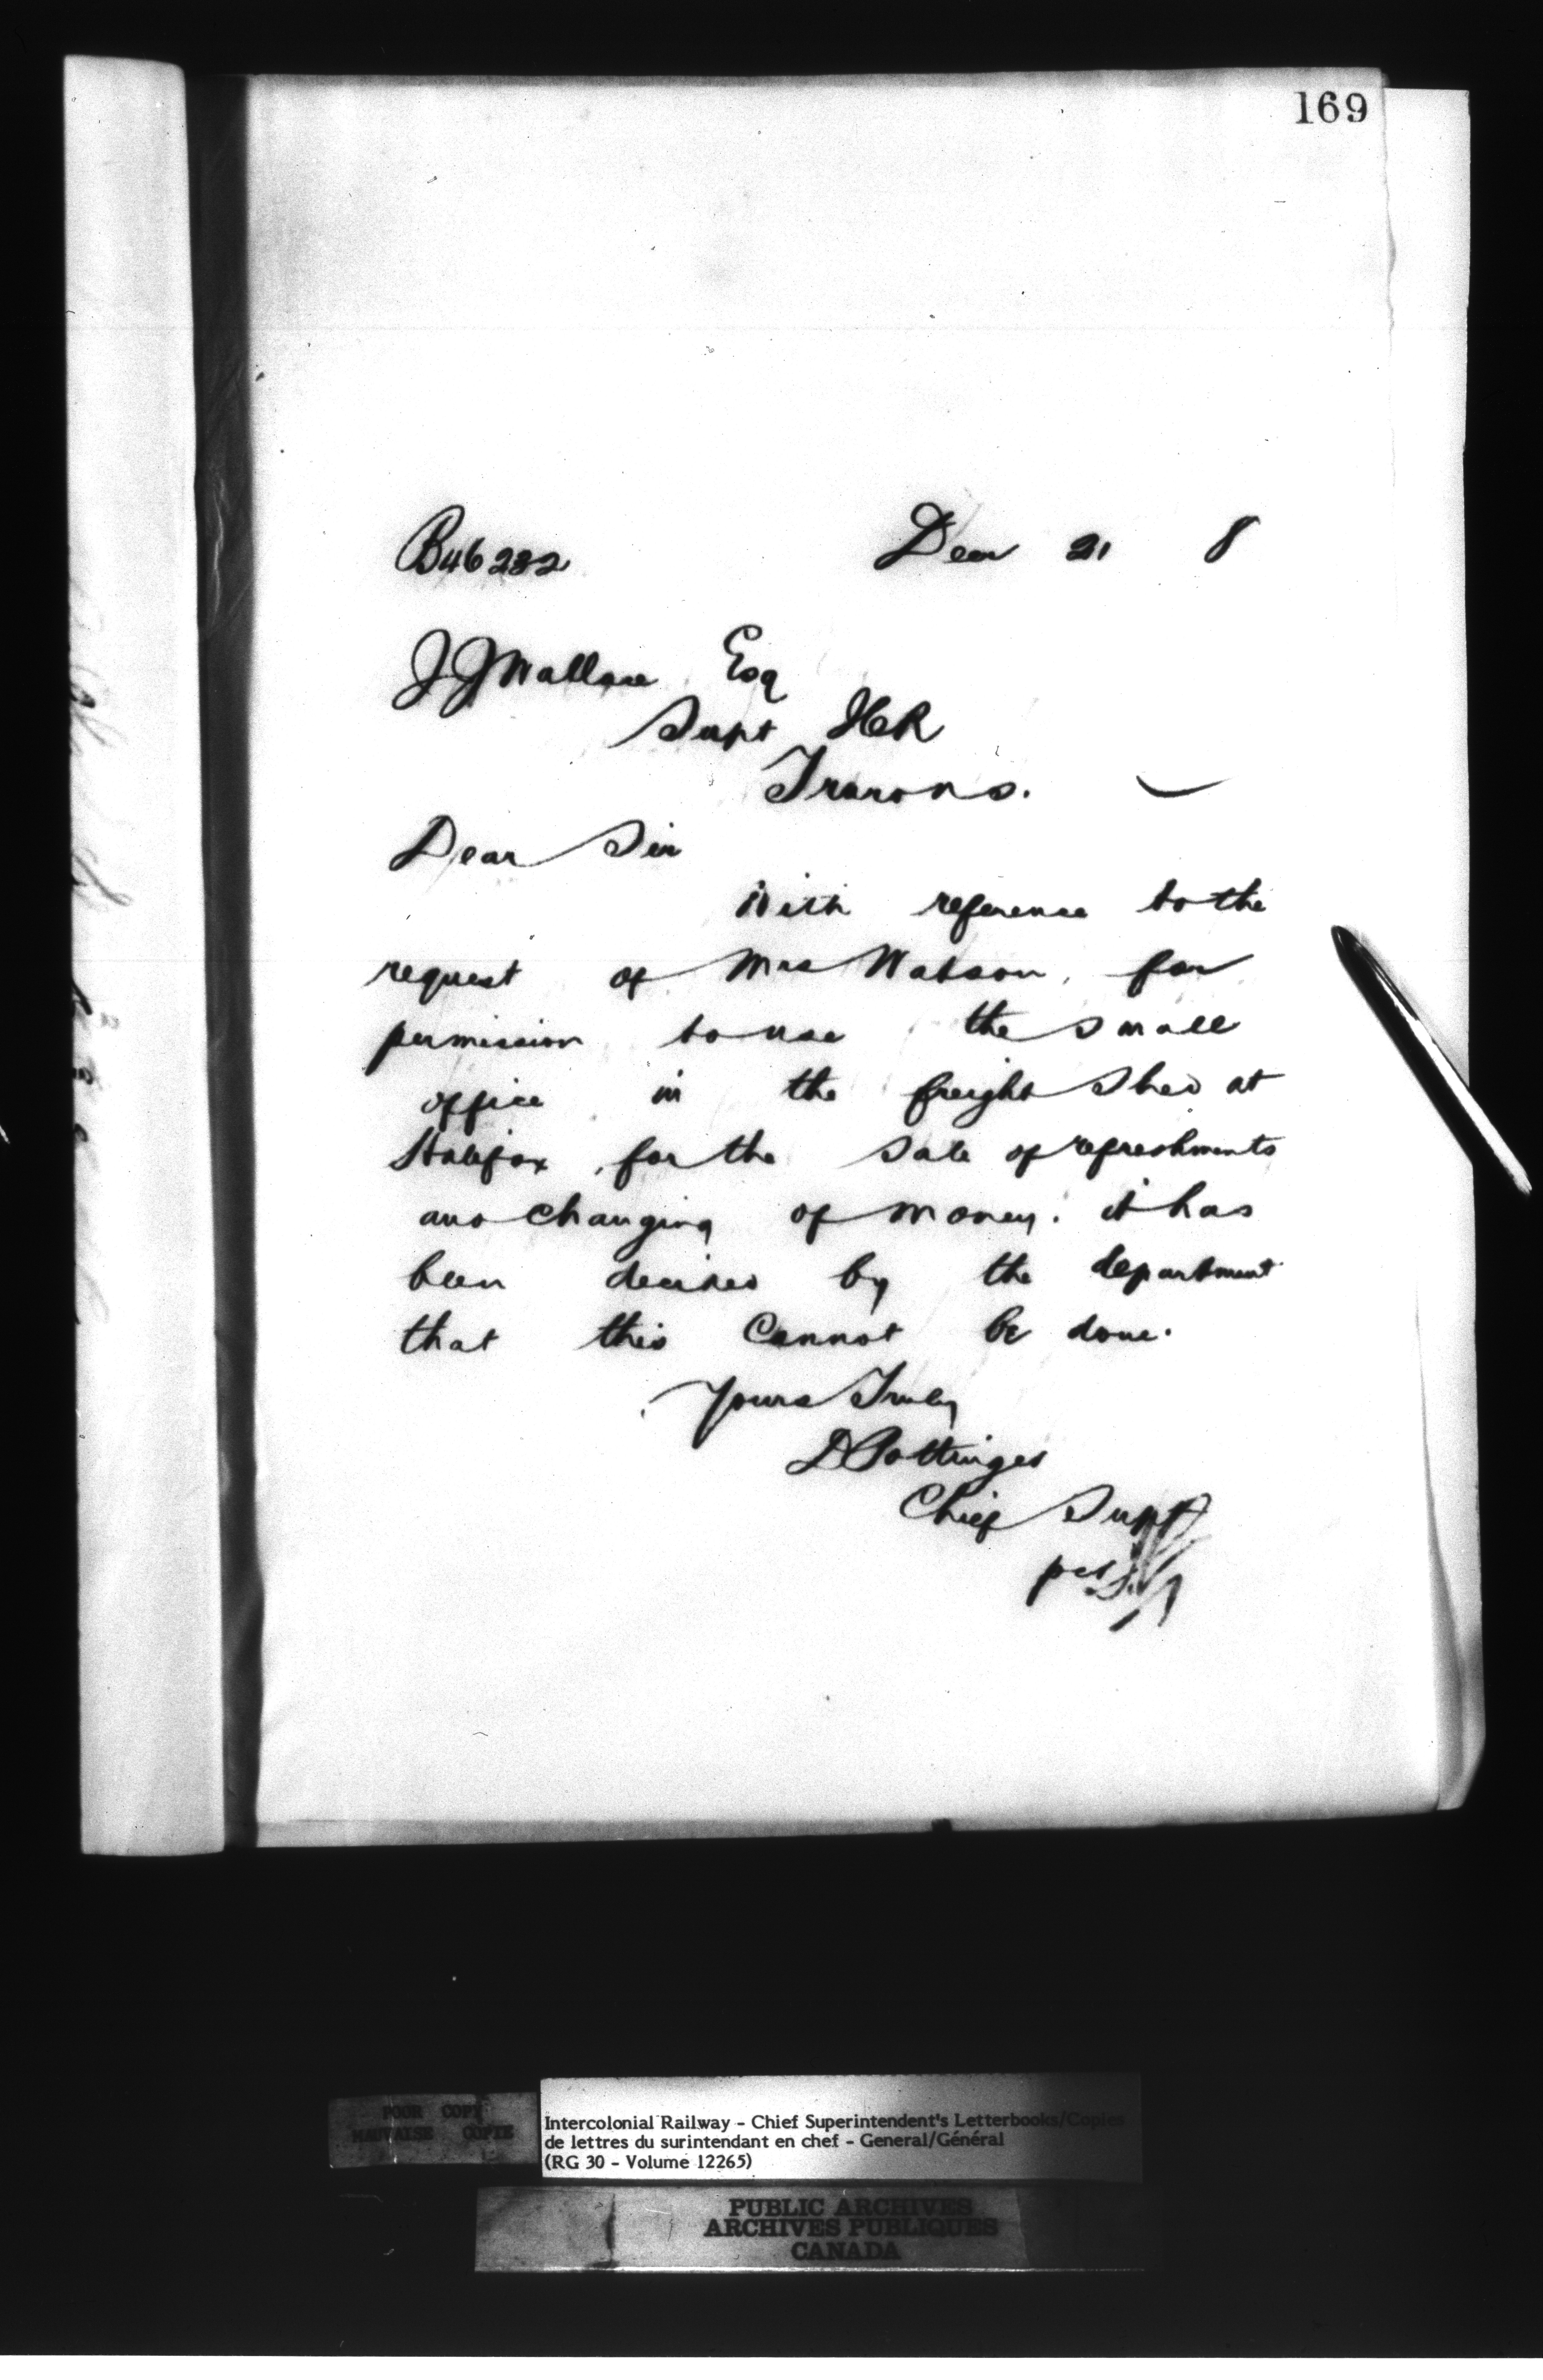 169
B46232 Decr 21 8
J J Wallace Esq
Supt ICR
Truro N.S.
Dear Sir
With reference to the
request of Mrs Watson, for
permission to use the small
office in the freight shed at
Halifax, for the sale of refreshments
and changing of money. it has
been decided by the department
that this Cannot be done.
Yours Truly
D Pottinger
Chief Supt
per
POOR COPY
MAUVAISE COPIE
Intercolonial Railway - Chief Superintendent's Letterbooks/Copies
de lettres du surintendant en chef - General/Général
(RG 30 - Volume 12265)
PUBLIC ARCHIVES
ARCHIVES PUBLIQUES
CANADA